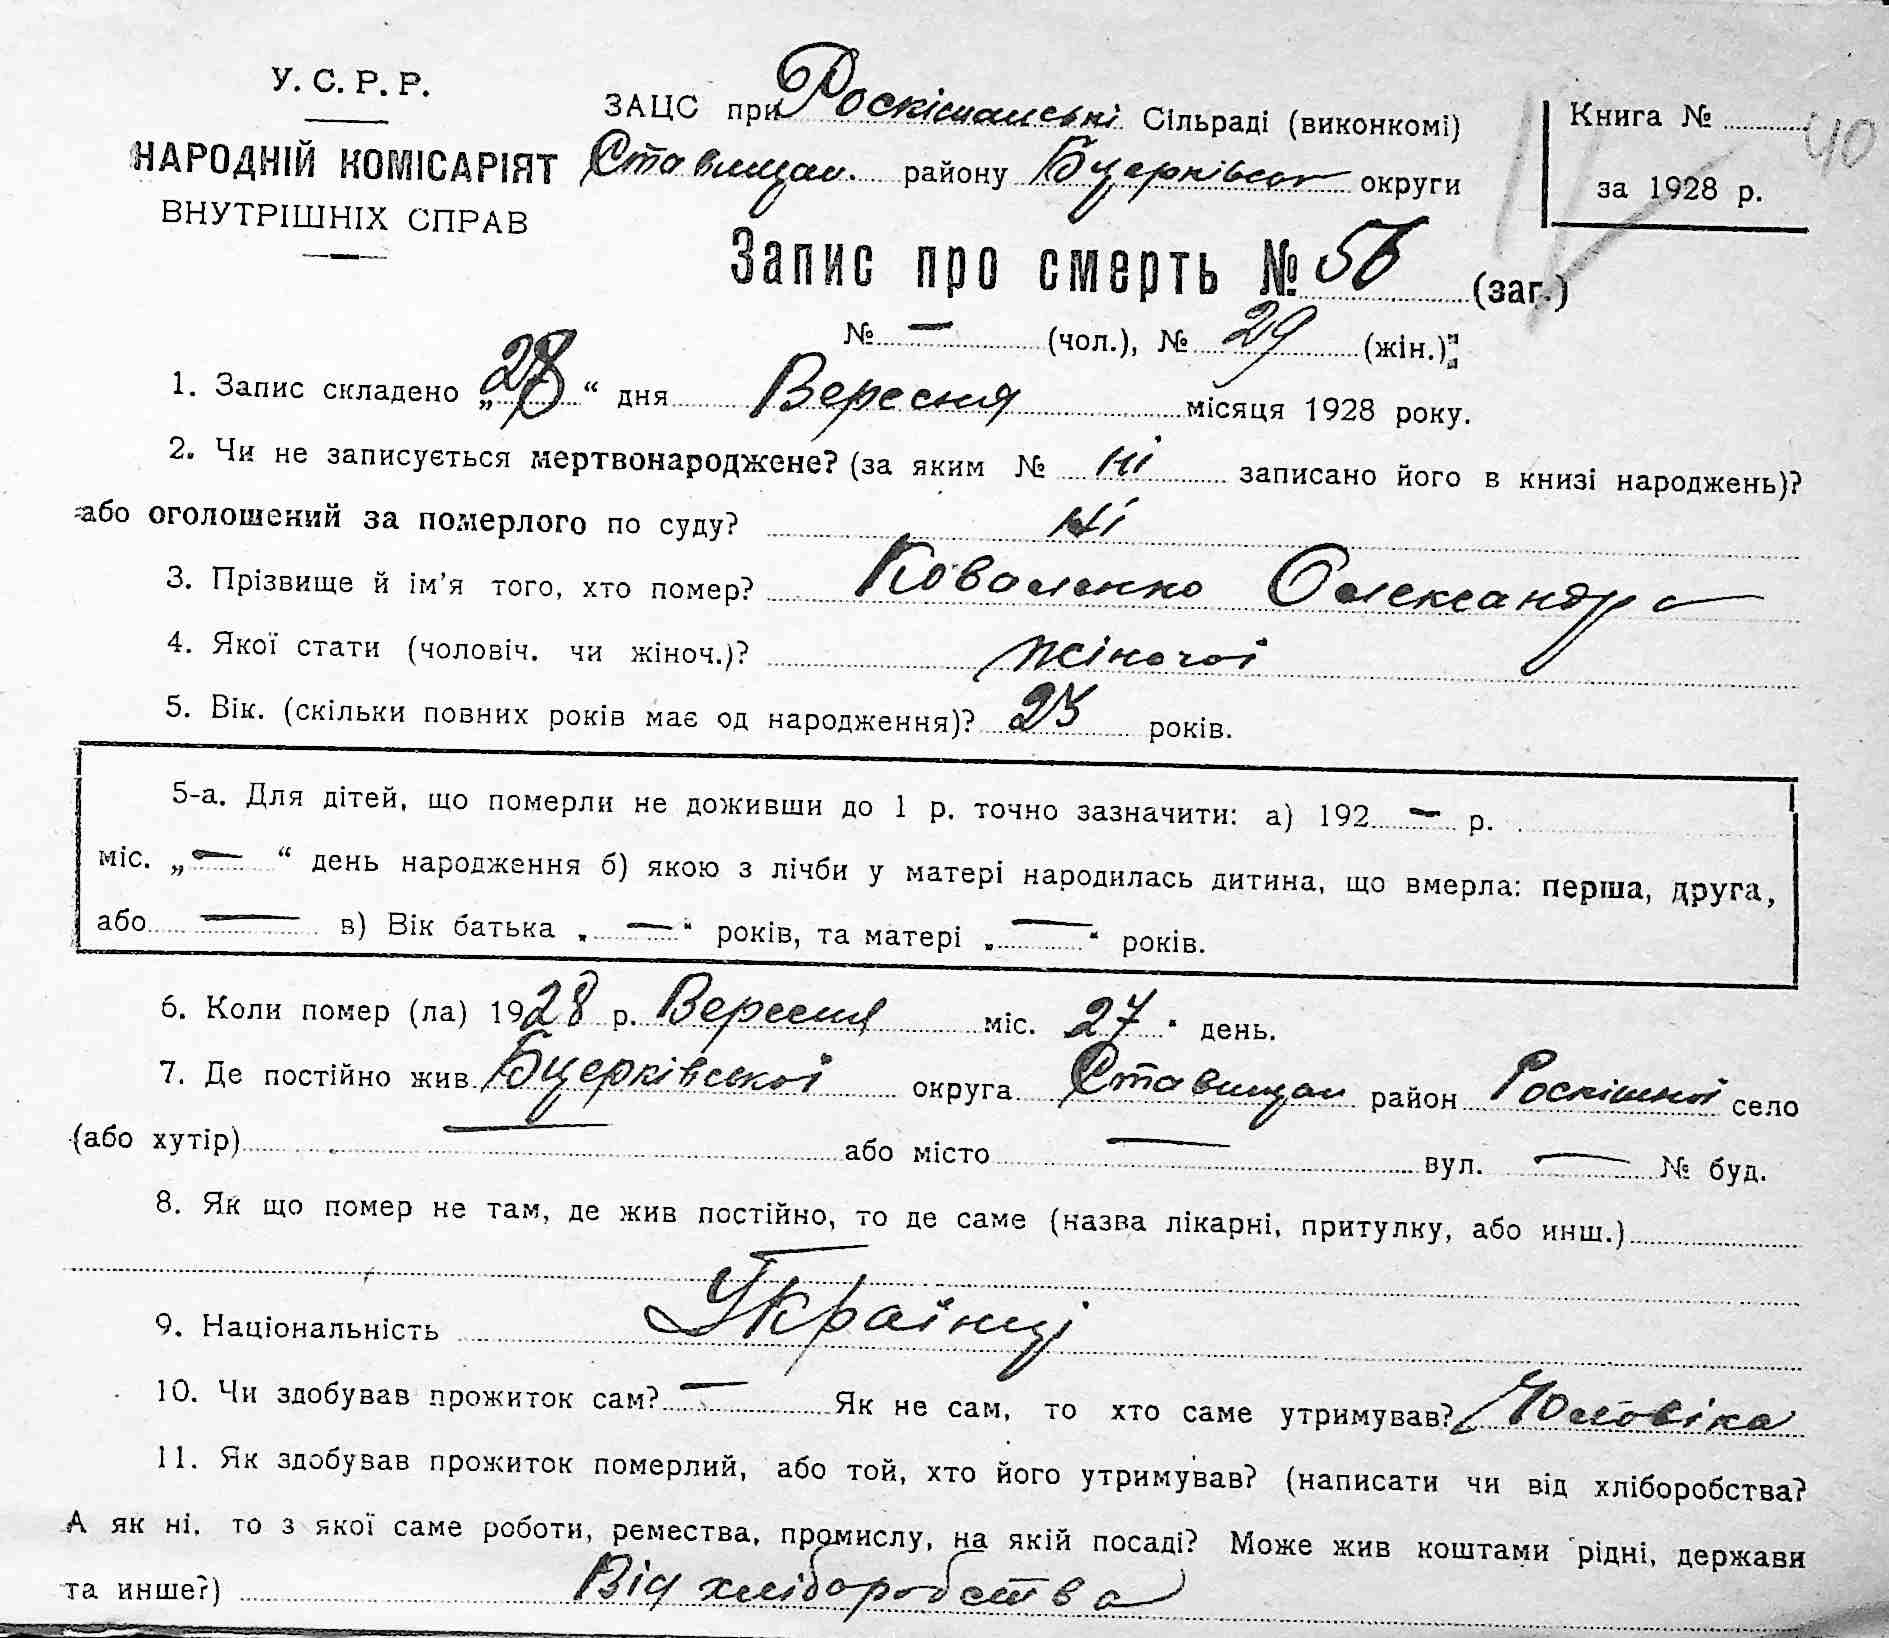 У.С.Р.Р.
НАРОДНІЙ КОМІСАРІЯТ
ВНУТРІШНІХ СПРАВ
ЗАЦС при Роскішанські Сільраді (виконкомі)
Ставищан. району Бцерківськ округи
Книга № 40
за 1928 р.
Запис про смерть № 56 (заг.)
№ — (чол.), № 29 (жін.)
1. Запис складено „28“ дня Вересня місяця 1928 року.
2. Чи не записується мертвонароджене? (за яким № ні записано його в книзі народжень)?
або оголошений за померлого по суду? ні
3. Прізвище й ім'я того, хто помер? Коваленко Олександра
4. Якої стати (чоловіч. чи жіноч.)? жіночої
5. Вік. (скільки повних років має од народження)? 25 років.
5-а. Для дітей, що померли не доживши до 1 р. точно зазначити: а) 192 — р.
міс. „—“ день народження б) якою з лічби у матері народилась дитина, що вмерла: перша, друга,
або — в) Вік батька „—“ років, та матері „—“ років.
6. Коли помер (ла) 1928 р. Вересня міс. 27 “ день.
7. Де постійно жив Бцерківської округа Ставищан район Роскішної село
(або хутір) — або місто — вул. — № буд.
8. Як що помер не там, де жив постійно, то де саме (назва лікарні, притулку, або инш.)
—
9. Національність Українці
10. Чи здобував прожиток сам? — Як не сам, то хто саме утримував? Чоловіка
11. Як здобував прожиток померлий, або той, хто його утримував? (написати чи від хліборобства?
А як ні, то з якої саме роботи, ремества, промислу, на якій посаді? Може жив коштами рідні, держави
та инше?) Від хліборобства